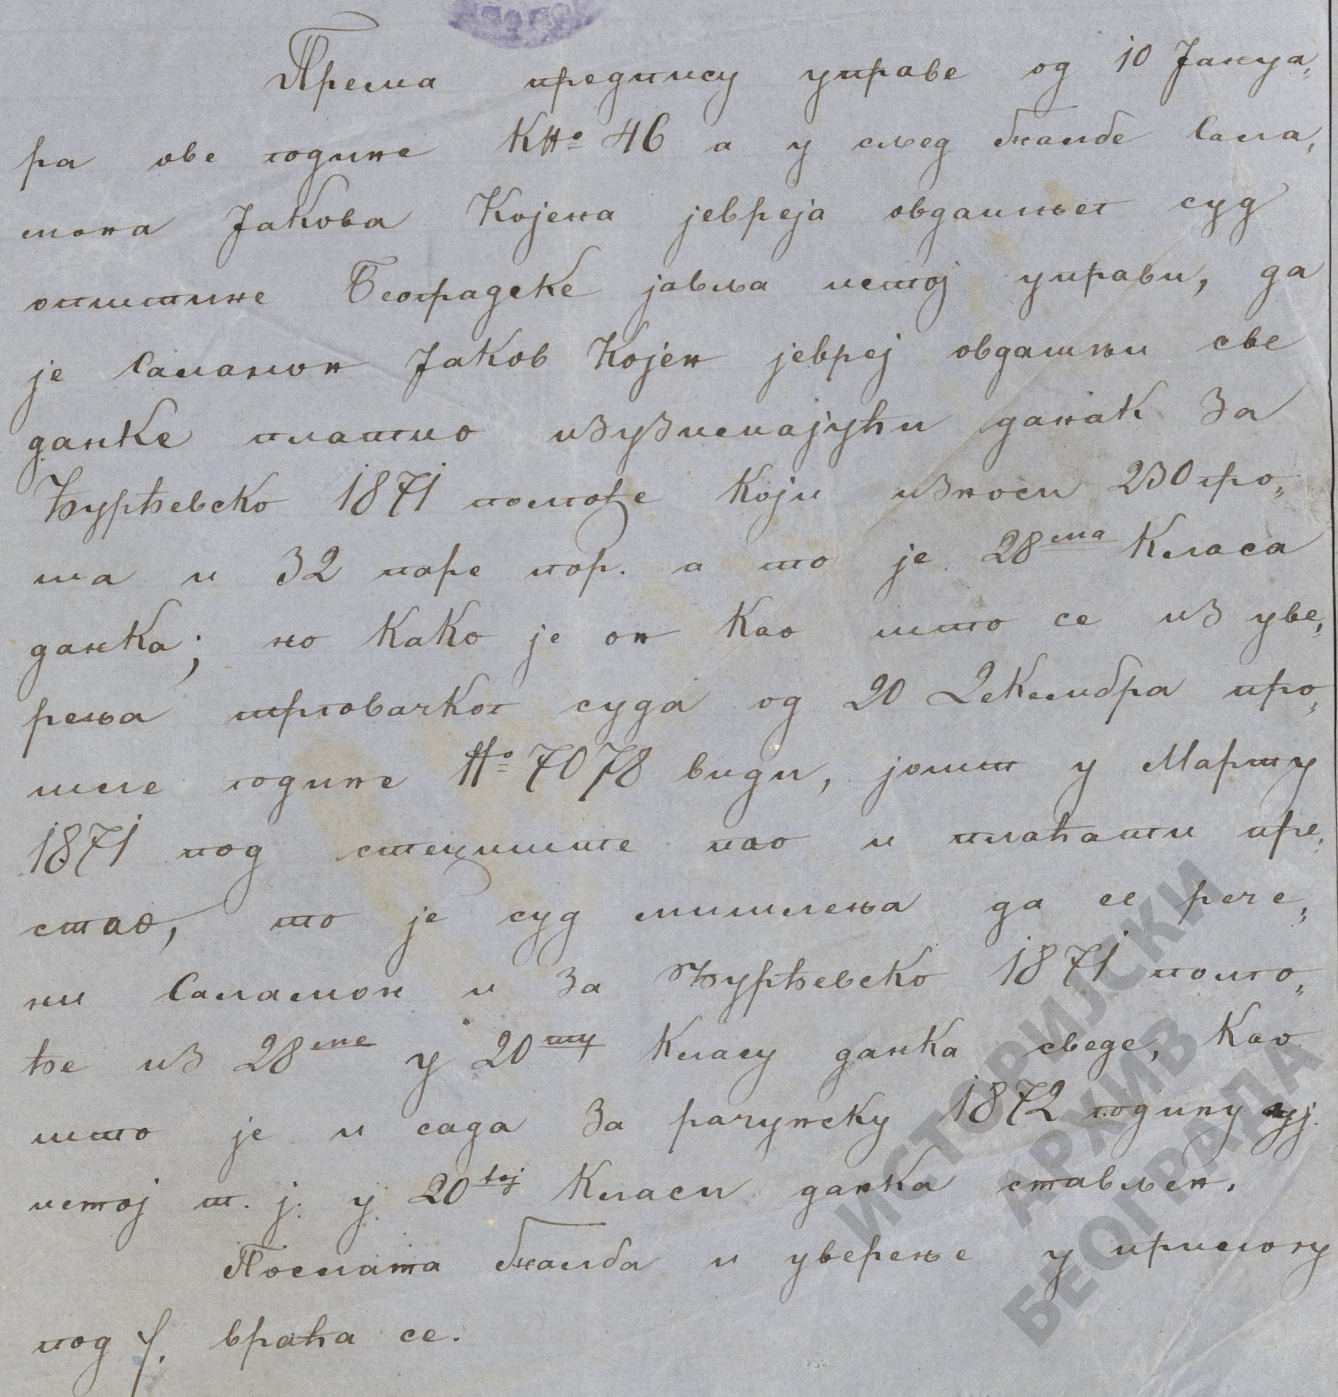 Према предпису управе од 10 Јануа„
ра ове године КН⁰ 46 а у след жалбе Сала„
мона Јакова Којена јевреја овдашњег суд
општине Београдске јавља истој управи, да
је Саламон Јаков Којен јевреј овдашњи све
данке платио изузимајући данак за
Ђурђевско 1871 полгође који износи 230 гро„
ша и 32 паре пор. а то је 28ма Класа
данка; но како је он као што се из уве„
рења трговачког суда од 20 Декембра про„
шле године Н⁰ 7078 види, јошт у Марту
1871 под стециште пао и плаћати пре„
стао, то је суд мишлења да се рече„
ни Саламон и за Ђурђевско 1871 полго„
ђе из 28ме у 20ту Класу данка сведе, као
што је и сада за рачунску 1872 годину у
истој т. ј. у 20тој Класи данка стављен.
Послата жалба и уверење у прилогу
под /. враћа се.
ИСТОРИЈСКИ
АРХИВ
БЕОГРАДА